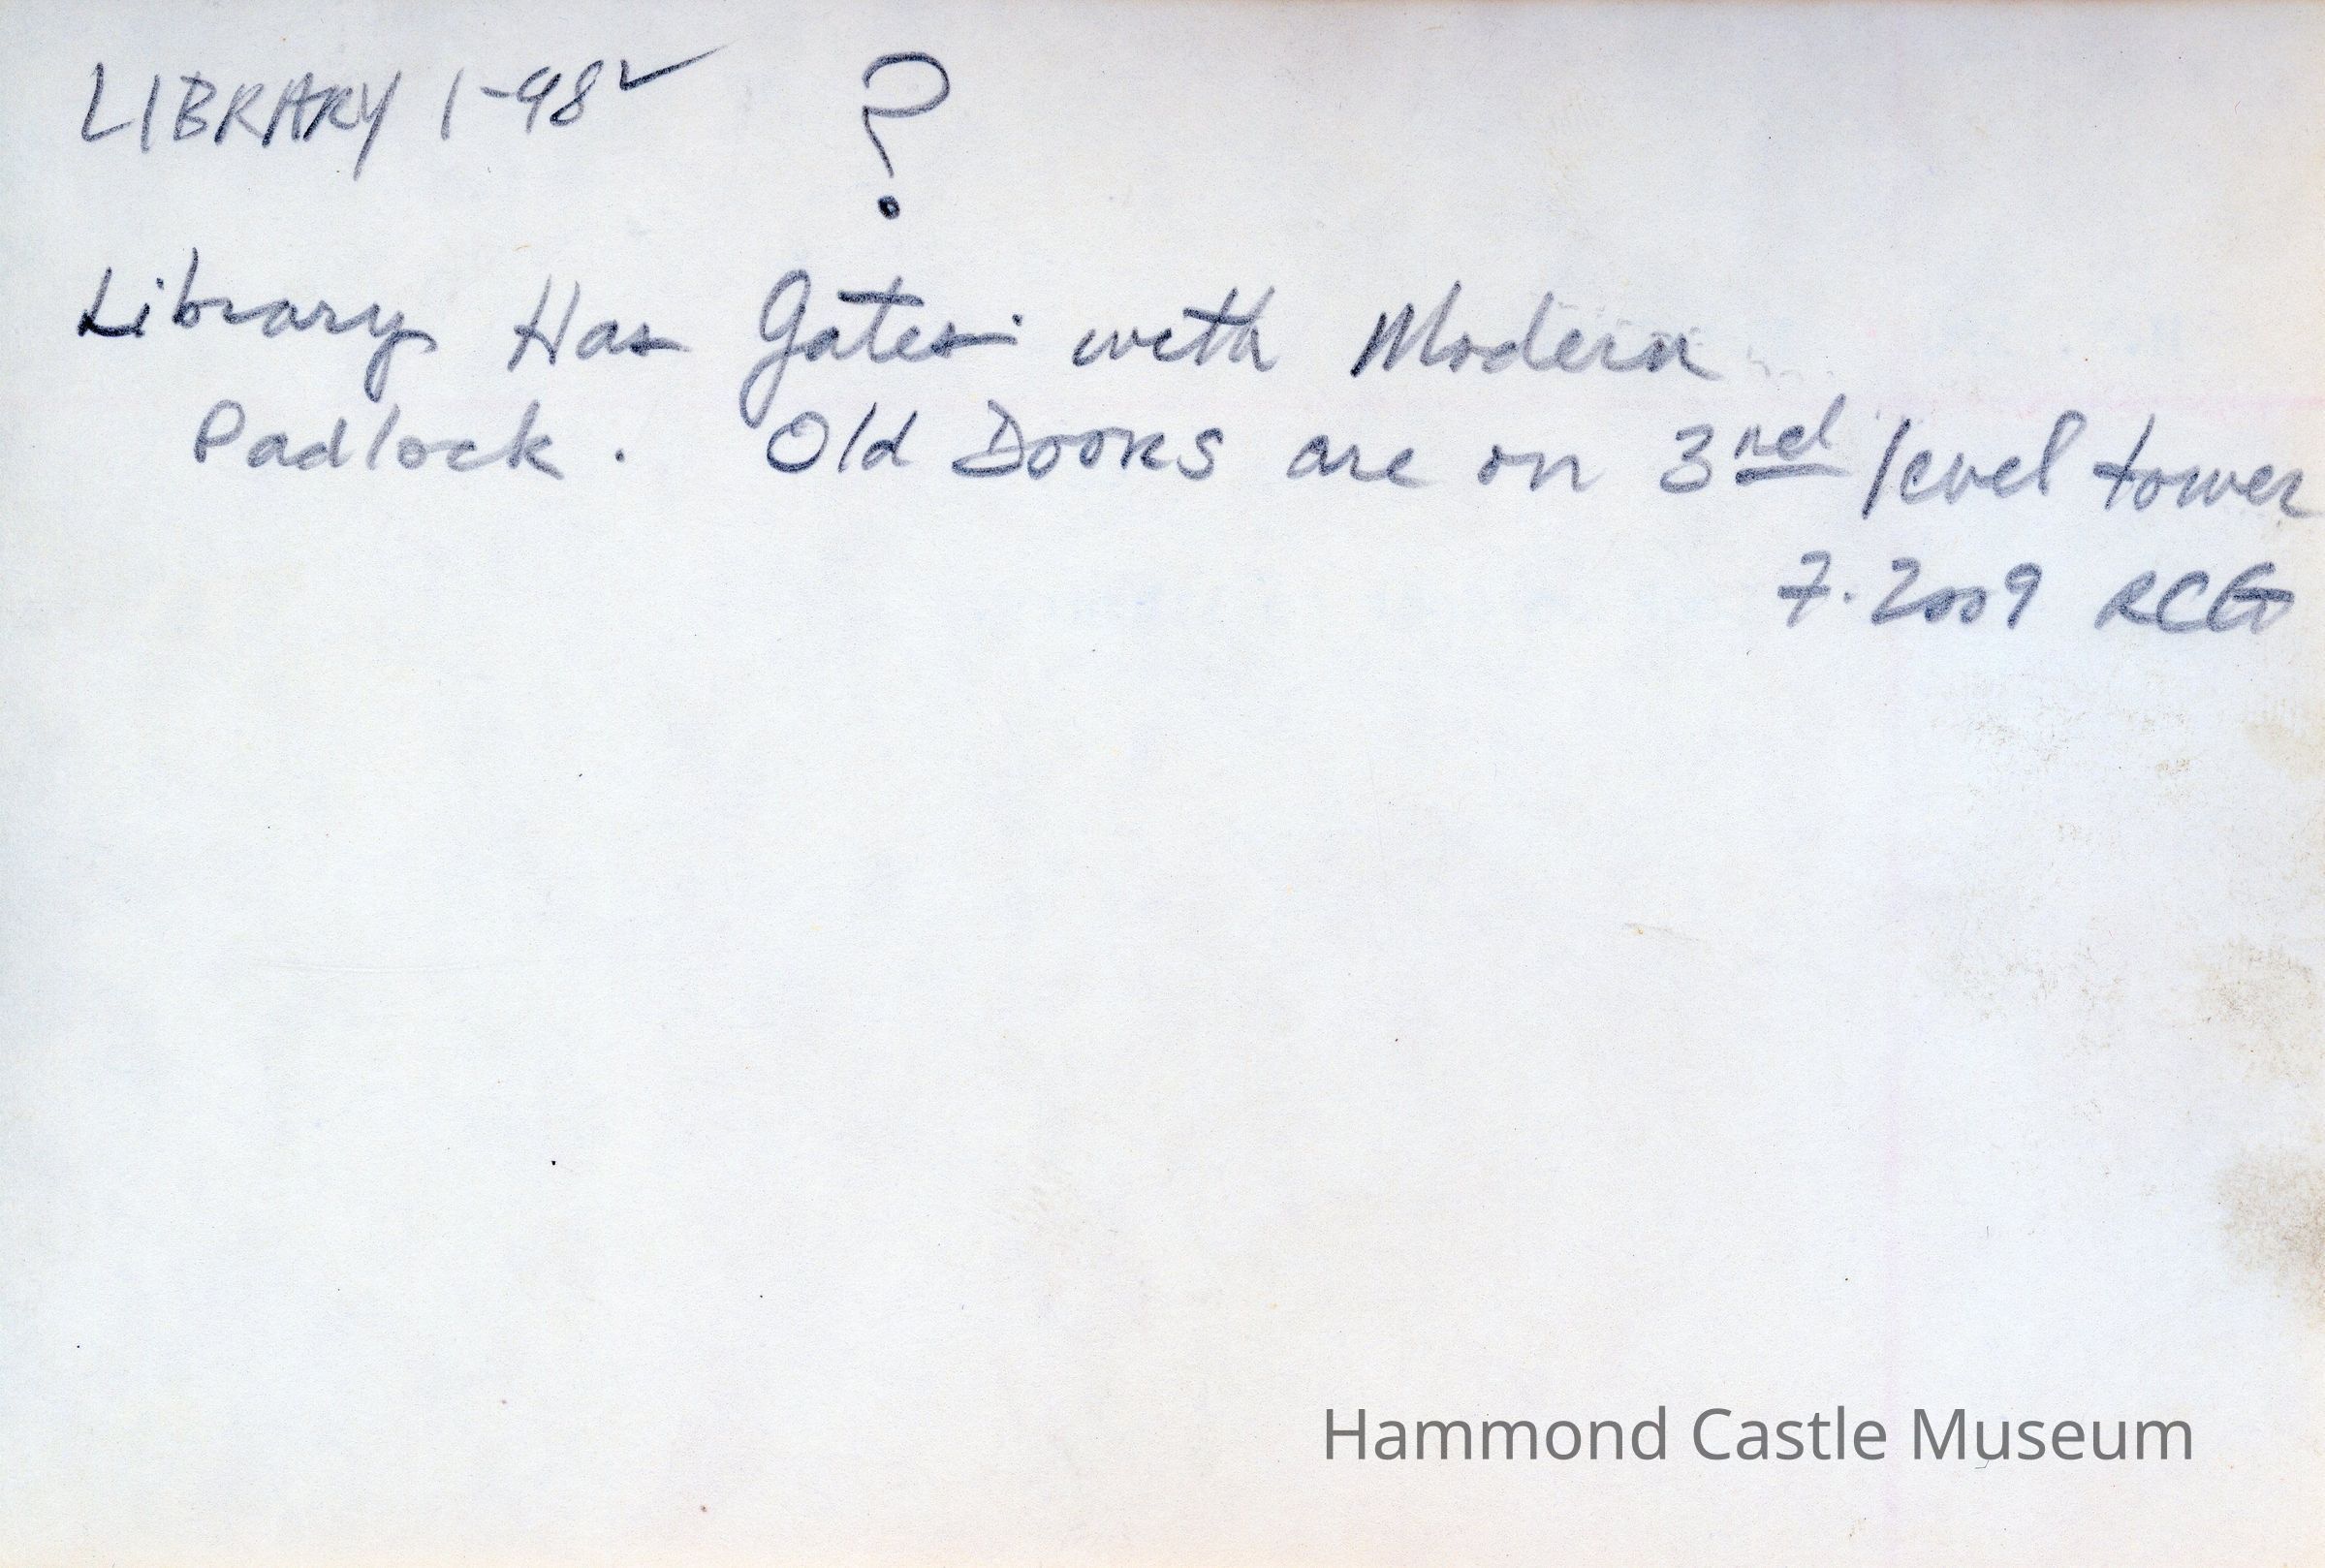 LIBRARY 1-98✓ ?
Library Has Gates with Modern
Padlock. Old Doors are on 3nd level tower
7.2009 RCG
Hammond Castle Museum